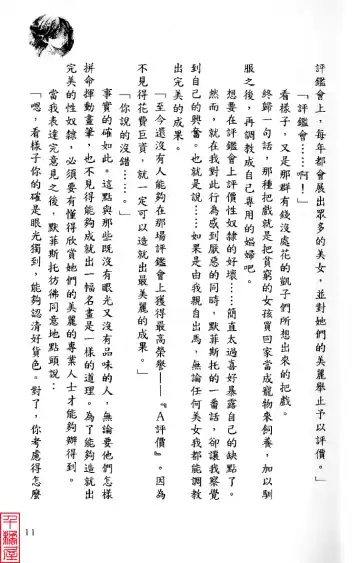 評鑑會上，每年都會展出眾多的美女，並對她們的美麗舉止予以評價。」
「評鑑會……啊！」
看樣子，又是那群有錢沒處花的凱子們所想出來的把戲。
終歸一句話，那種把戲就是把貧窮的女孩買回家當成寵物來飼養，加以馴
服之後，再調教成自己專用的娼婦吧。
想要在評鑑會上評價性奴隸的好壞……簡直太過喜好暴露自己的缺點了。
然而，就在我對此行為感到厭惡的同時，默菲斯托的一番話，卻讓我察覺
到自己的興奮。也就是說……如果是由我親自出馬，無論任何美女我都能調教
出完美的成果。
「至今還沒有人能夠在那場評鑑會上獲得最高榮譽——『A評價』。因為
不見得花費巨資，就一定可以造就出最美麗的成果。」
「你說的沒錯……。」
事實的確如此。這點與那些既沒有眼光又沒有品味的人，無論要他們怎樣
拼命揮動畫筆，也不見得能夠成就出一幅名畫是一樣的道理。為了能夠造就出
完美的性奴隸，必須要有懂得欣賞她們的美麗的專業人士才能夠辦得到。
當我表達完意見之後，默菲斯托彷彿同意地點頭說：
「嗯，看樣子你的確是眼光獨到，能夠認清好貨色。對了，你考慮得怎麼
11